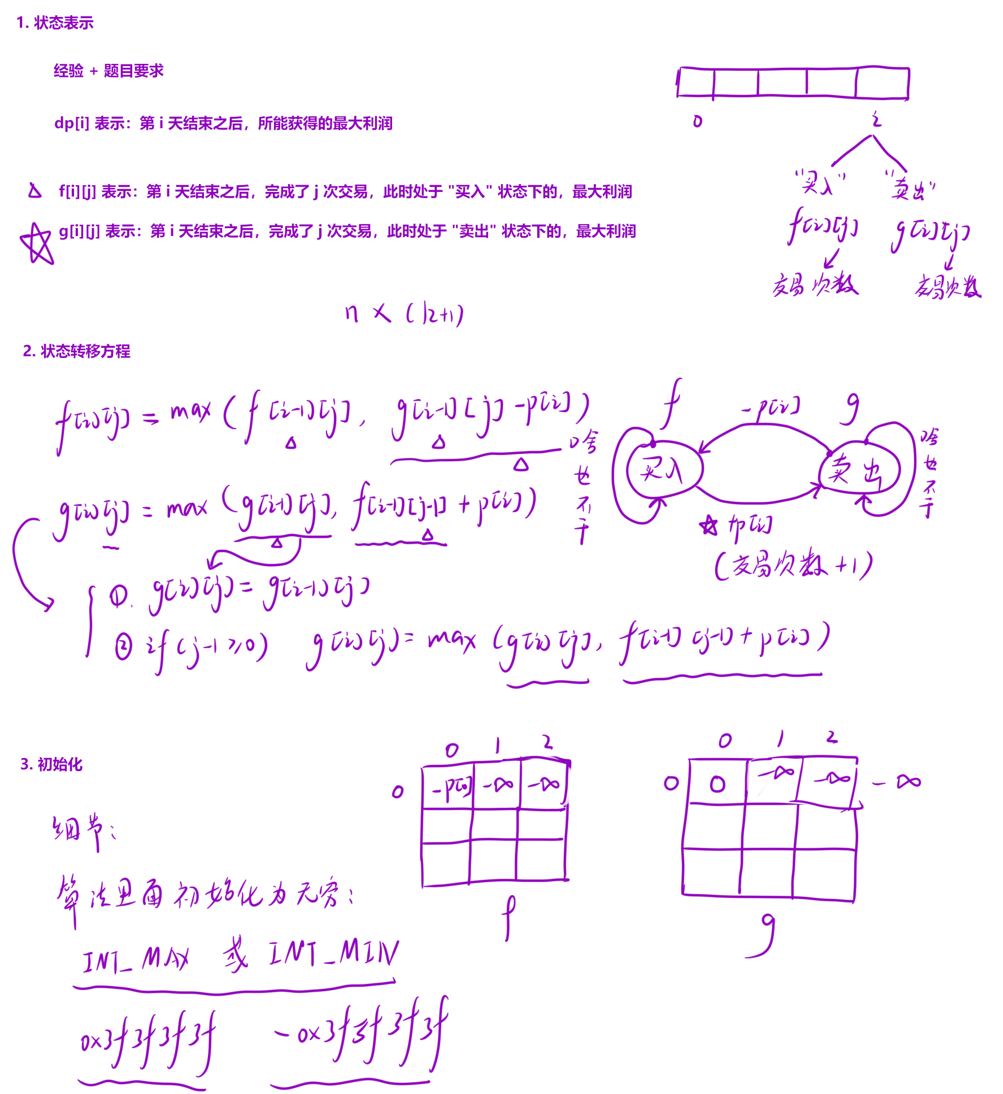 1. 状态表示
经验 + 题目要求
dp[i] 表示：第 i 天结束之后，所能获得的最大利润
f[i][j] 表示：第 i 天结束之后，完成了 j 次交易，此时处于 "买入" 状态下的，最大利润
g[i][j] 表示：第 i 天结束之后，完成了 j 次交易，此时处于 "卖出" 状态下的，最大利润
0 i
"买入" "卖出"
f[i][j] g[i][j]
交易次数 交易次数
n × (k+1)
2. 状态转移方程
f[i][j] = max(f[i-1][j], g[i-1][j]-p[i])
g[i][j] = max(g[i-1][j], f[i-1][j-1]+p[i])
①. g[i][j] = g[i-1][j]
② if(j-1≥0) g[i][j] = max(g[i][j], f[i-1][j-1]+p[i])
f -p[i] g
啥也不干
买入 卖出
啥也不干
+p[i]
(交易次数+1)
3. 初始化
细节：
算法里面初始化为无穷：
INT_MAX 或 INT_MIN
0x3f3f3f3f -0x3f3f3f3f
0 1 2
0 -p[0] -∞ -∞
f
0 1 2
0 0 -∞ -∞ -∞
g